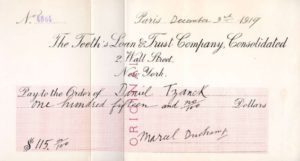 No.
Paris December 3rd 1919
The Teeth's Loan & Trust Company, Consolidated
2 Wall Street.
New York.
Pay to the Order of Daniel Tzanck
one hundred fifteen and no/100 Dollars
ORIGINAL
$ 115.00/100
Marcel Duchamp